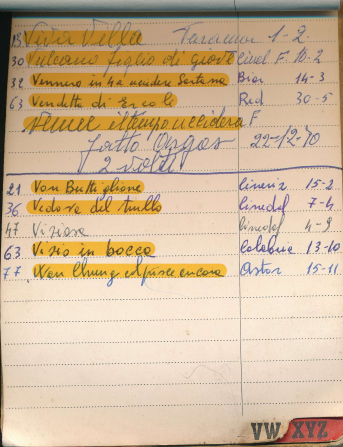 15 Viva Villa Taramur 1-2
30 Vulcano figlio di Giove Cinel F. 10-2
32 Vennero in 4 a uccidere Sartana Bior 14-3
63 Vendetta di Ercole Red 30-5
F
fatto Orgas 22-12-70
2 volte
21 Von Buttiglione Cinenz 15-2
36 Vedova del trullo Cinedel 7-4
47 Viziosa Cinedel 4-9
63 Visio in bocca Calabua 13-10
77 Wan Chung colpisce ancora Astor 15-11
VW XYZ